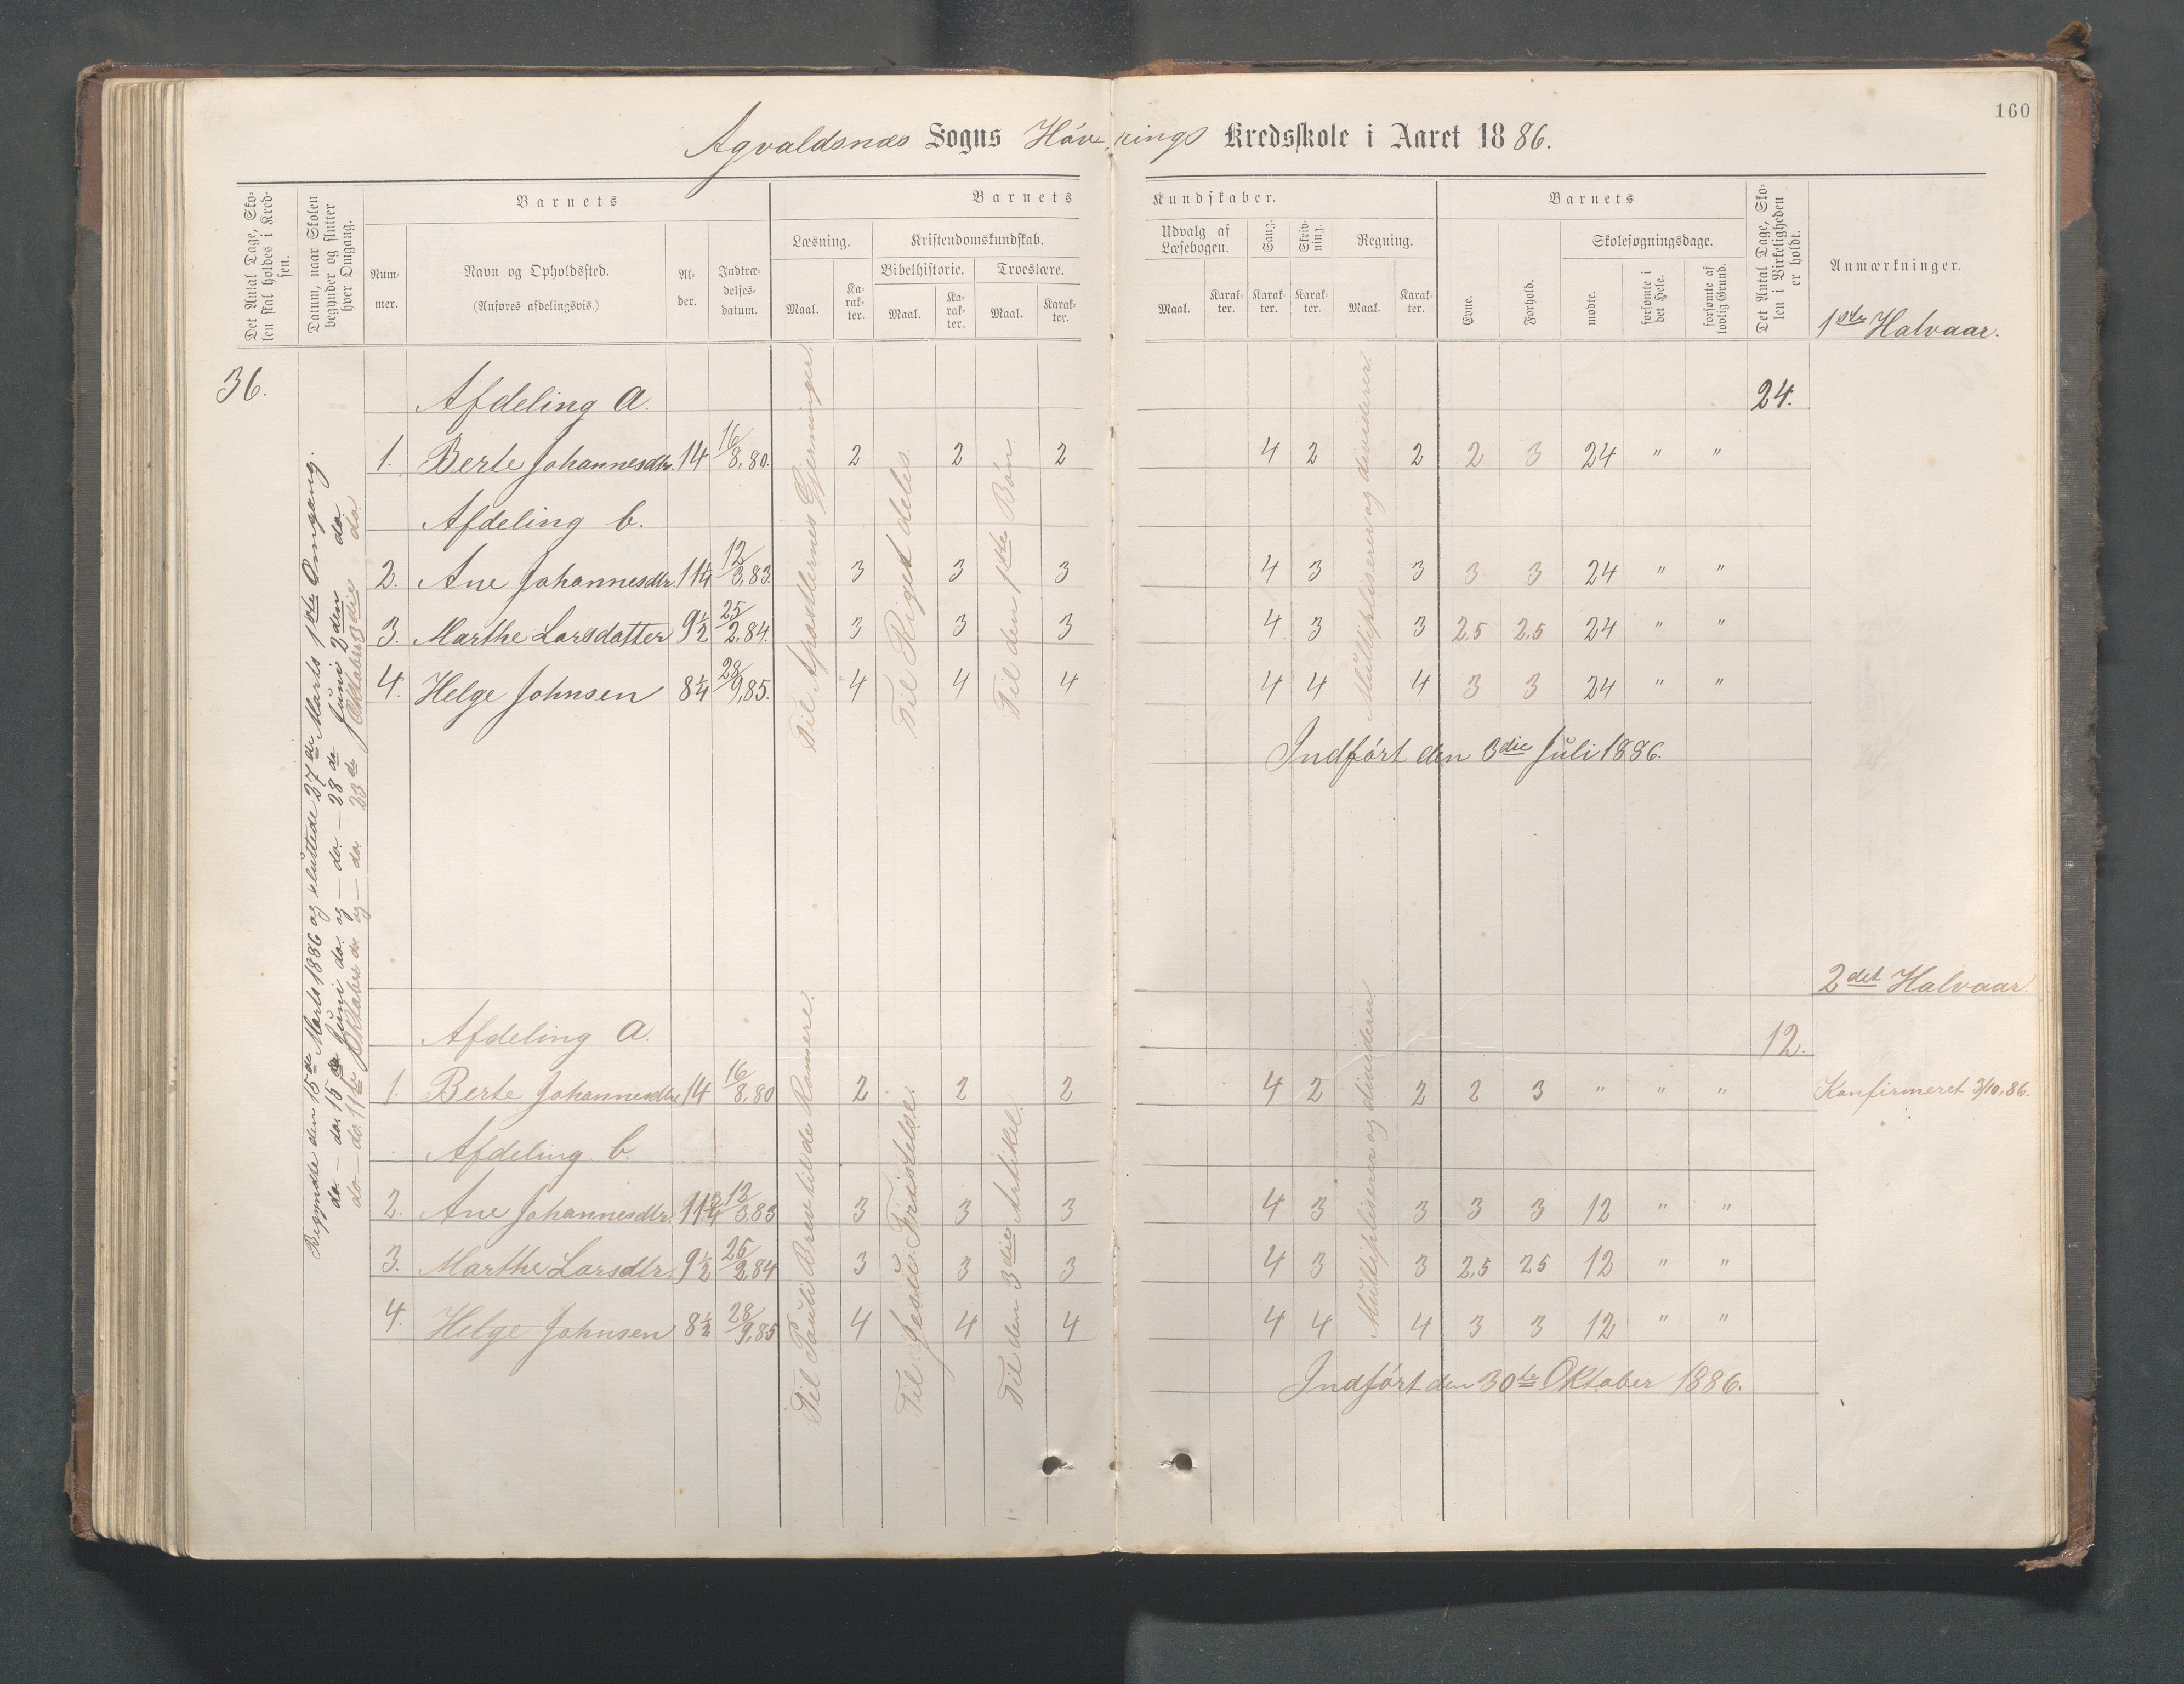 160
Agvaldsnæs Sogns Hávrings Kredsskole i Aaret 1886.
Det Antal Dage, Skolen skal holdes i Kredsen.
Datum, naar Skolen begynder og slutter hver Omgang.
Barnets
Nummer.
Navn og Opholdssted.
(Anføres afdelingsvis.)
Alder.
Indtrædelsesdatum.
Barnets Kundskaber.
Læsning.
Maal.
Karakter.
Kristendomskundskab.
Bibelhistorie.
Maal.
Karakter.
Troeslære.
Maal.
Karakter.
Udvalg af Læsebogen.
Maal.
Karakter.
Sang.
Karakter.
Skrivning.
Karakter.
Regning.
Maal.
Karakter.
Barnets
Evne.
Forhold.
Skolesøgningsdage.
mødte.
forsømte i det Hele.
forsømte af lovlig Grund.
Det Antal Dage, Skolen i Virkeligheden er holdt.
Anmærkninger.
1ste Halvaar.
36.
Begyndte den 15de Marts 1886 og sluttede 27de Marts 1ste Omgang.
do — do. 15de Juni do. og — do. — 28de Juni 2den do.
do — do. 11te Oktober do. og — do. 23de Oktober 3die do.
Afdeling a. 24.
1. Berte Johannesdtr. 14 16/8,80. 2 2 2 4 2 2 2 3 24 " "
Afdeling b.
2. Ane Johannesdtr. 11 1/4 12/3,83. 3 3 3 4 3 3 3 3 24 " "
3. Marthe Larsdatter 9 1/2 25/2,84. 3 3 3 4 3 3 2,5 2,5 24 " "
4. Helge Johnsen 8 1/4 28/9,85. 4 4 4 4 4 4 3 3 24 " "
Til Apostlernes Gjerninger.
Til Riget deles.
Til den 1ste Bøn.
Multipliserer og dividerer.
Indført den 3die Juli 1886.
2det Halvaar.
Afdeling a. 12.
1. Berte Johannesdtr. 14 16/8,80 2 2 2 4 2 2 2 3 " " " Konfirmeret 3/10,86.
Afdeling b.
2. Ane Johannesdtr. 11 3/4 12/3,83 3 3 3 4 3 3 3 3 12 " "
3. Marthe Larsdtr. 9 1/2 25/2,84 3 3 3 4 3 3 2,5 2,5 12 " "
4. Helge Johnsen 8 1/2 28/9,85 4 4 4 4 4 4 3 3 12 " "
Til Pauli Brev til de Romere.
Til Jesu Fristelse.
Til den 3die Artikel.
Multipliserer og dividerer.
Indført den 30te Oktober 1886.